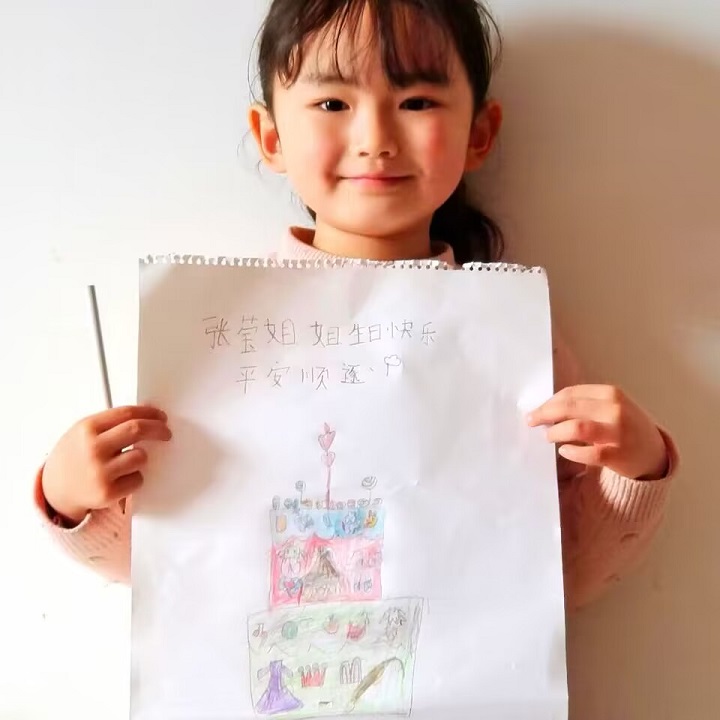 张莹姐姐生日快乐
平安顺遂